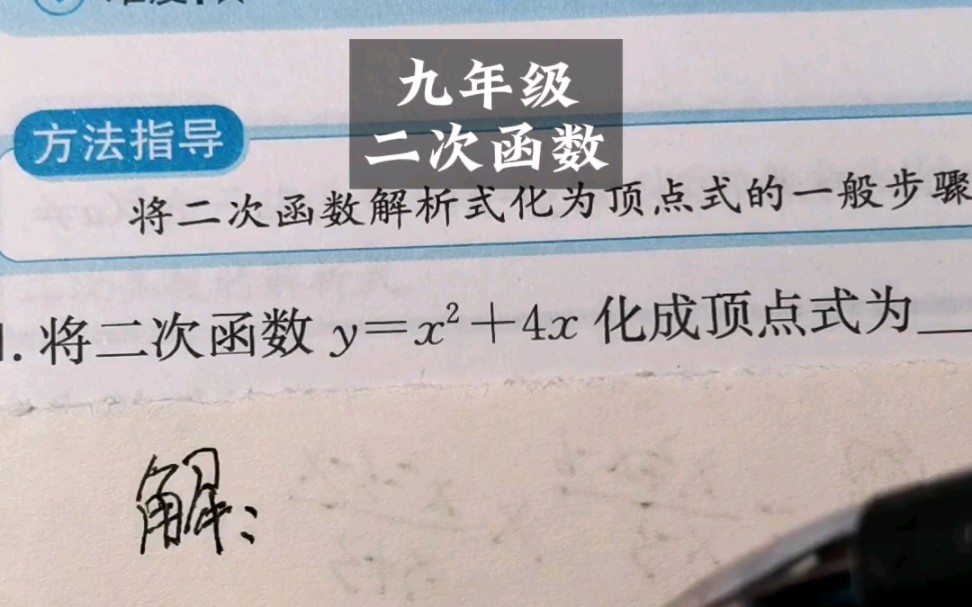 九年级
二次函数
方法指导
将二次函数解析式化为顶点式的一般步骤
1. 将二次函数 y=x²+4x 化成顶点式为
解: